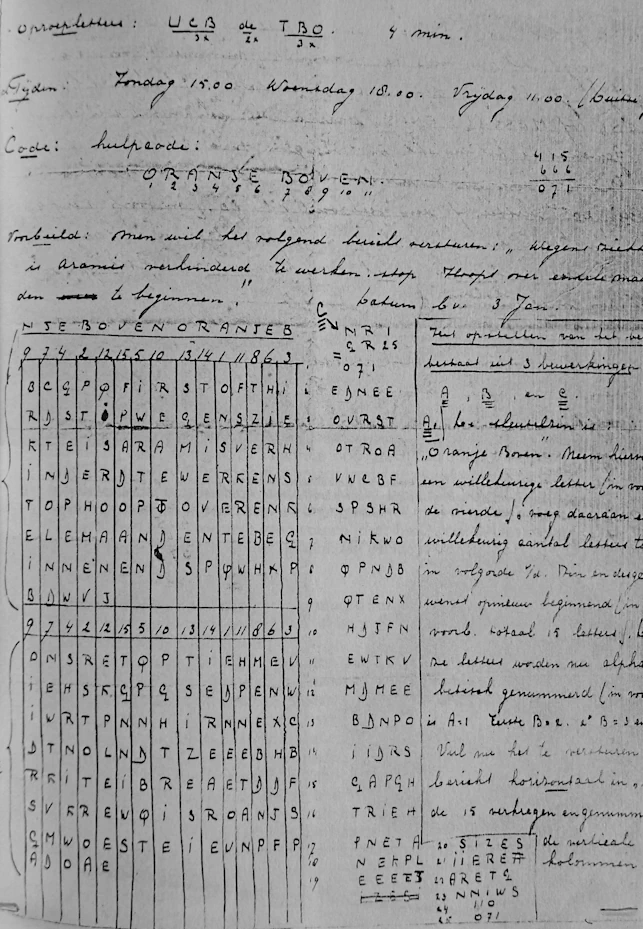 Oproepletters: UCB de TBO. 4 min.
3x 2x 3x
Tijden: Zondag 15.00 Woensdag 18.00. Vrijdag 11.00.
Code: hulpcode:
ORANJE BOVEN.
1 2 3 4 5 6 7 8 9 10 11
415
666
071
Voorbeeld: Men wil het volgend bericht versturen: „Wegens ziekte
is Aramis verhinderd te werken. stop Hoopt over enkele maan
den te beginnen."
Datum b.v. 3 Jan.
NJEBOVENORANJEB
9 7 4 2 12 15 5 10 13 14 1 11 8 6 3
B C G P Q F I R S T O F T H I
R D S T O P W E G E N S Z I E
K T E I S A R A M I S V E R H
I N D E R D T E W E R K E N S
T O P H O O P T O V E R E N K
E L E M A A N D E N T E B E G
I N N E N E N D S P Q W H X P
B D W V J
9 7 4 2 12 15 5 10 13 14 1 11 8 6 3
O N S R E T Q P T I E H M E V
I E H S K G P G S E D P E N W
I W R T P N N H I R N N E X C
D T N O L N D T Z E E E B H B
R K I T E I B R E A E T D D F
S V K R E W Q I S R O A N J S
G M W O E S T E I E V N P F P
A D O A E
C
NR 1
GR 25
071
EDNEE
3 OVRST
4 OTROA
5 VNCBF
6 SPSHR
7 NIKWO
8 QPNDB
9 QTENX
10 HDJFN
11 EWTKV
12 MDMEE
13 BDNPO
14 IIDRS
15 GAPGH
16 TRIEH
17 PNETA
18 NEKPL
19 EEEEJ
20 SIZES
21 IIEREA
22 ARETG
23 NNIWS
24 110
25 071
Het opstellen van het be
bestaat uit 3 bewerkingen
A, B, en C.
A. De sleutelzin is:
„Oranje Boven". Neem hierv
een willekeurige letter (in vo
de vierde). voeg daaraan e
willekeurig aantal letters t
in volgorde v/d. zin en desge
wenst opnieuw beginnend (in
voorb. totaal 15 letters).
ze letters worden nu alpha
betisch genummerd (in vo
is A=1 Eerste B=2. 2e B=3 en
Vul nu het te versturen
bericht horizontaal in
de 15 verkregen en genumm
de verticale
kolommen